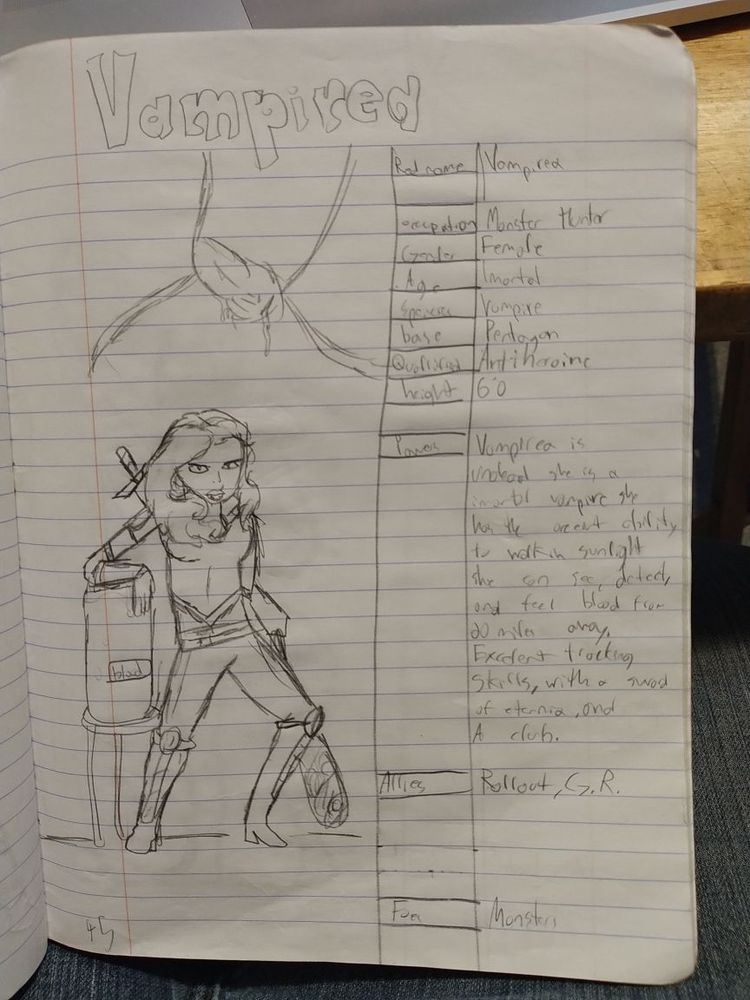 Vampirea
Real name Vampirea
occupation Monster Hunter
Gender Female
Age Imortal
Species Vampire
base Pentagon
Antiheroine
height 6'0
Powers Vampirea is
undead she is a
imortal vampire she
has the ability
to walk in sunlight
she can see, detect,
and feel blood from
20 miles away.
Excelent tracking
skills, with a sword
of eternia, and
A club.
Allies Rollout, G.R.
Foes Monsters
blood
45